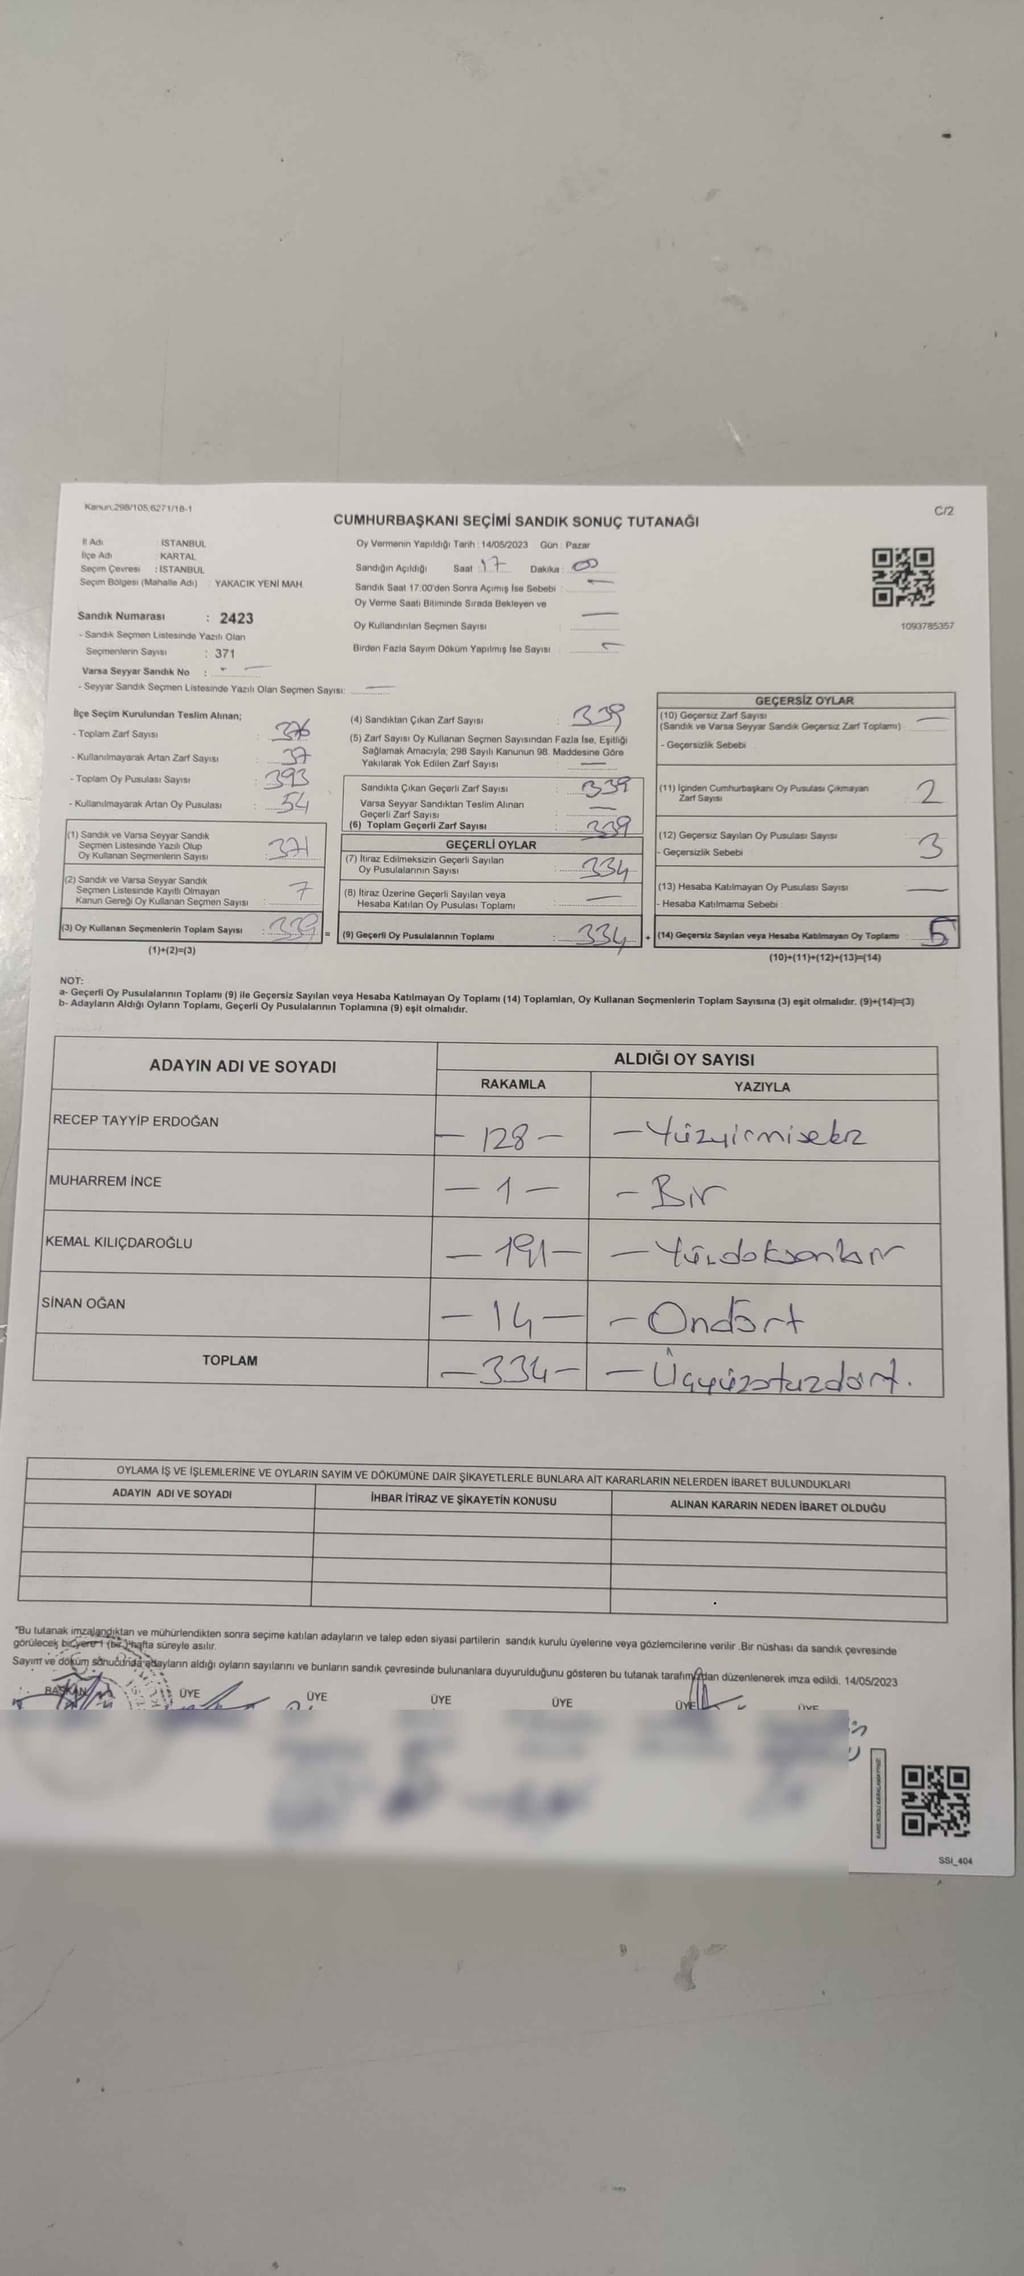 Kanun.298/105,6271/18-1
C/2
CUMHURBAŞKANI SEÇİMİ SANDIK SONUÇ TUTANAĞI
İl Adı : İSTANBUL
İlçe Adı KARTAL
Seçim Çevresi : İSTANBUL
Seçim Bölgesi (Mahalle Adı) : YAKACIK YENİ MAH.
Sandık Numarası : 2423
- Sandık Seçmen Listesinde Yazılı Olan
Seçmenlerin Sayısı : 371
Varsa Seyyar Sandık No : -
- Seyyar Sandık Seçmen Listesinde Yazılı Olan Seçmen Sayısı: —
Oy Vermenin Yapıldığı Tarih : 14/05/2023 Gün : Pazar
Sandığın Açıldığı Saat : 17 Dakika : 00
Sandık Saat 17:00'den Sonra Açımış İse Sebebi : —
Oy Verme Saati Bitiminde Sırada Bekleyen ve
Oy Kullandırılan Seçmen Sayısı —
Birden Fazla Sayım Döküm Yapılmış İse Sayısı —
1093785357
İlçe Seçim Kurulundan Teslim Alınan;
- Toplam Zarf Sayısı : 376
- Kullanılmayarak Artan Zarf Sayısı : 37
- Toplam Oy Pusulası Sayısı : 393
- Kullanılmayarak Artan Oy Pusulası : 54
(1) Sandık ve Varsa Seyyar Sandık
Seçmen Listesinde Yazılı Olup
Oy Kullanan Seçmenlerin Sayısı : 371
(2) Sandık ve Varsa Seyyar Sandık
Seçmen Listesinde Kayıtlı Olmayan
Kanun Gereği Oy Kullanan Seçmen Sayısı : 7
(3) Oy Kullanan Seçmenlerin Toplam Sayısı : 339 =
(1)+(2)=(3)
(4) Sandıktan Çıkan Zarf Sayısı : 339
(5) Zarf Sayısı Oy Kullanan Seçmen Sayısından Fazla İse, Eşitliği
Sağlamak Amacıyla, 298 Sayılı Kanunun 98. Maddesine Göre
Yakılarak Yok Edilen Zarf Sayısı —
Sandıkta Çıkan Geçerli Zarf Sayısı : 339
Varsa Seyyar Sandıktan Teslim Alınan
Geçerli Zarf Sayısı —
(6) Toplam Geçerli Zarf Sayısı : 339
GEÇERLİ OYLAR
(7) İtiraz Edilmeksizin Geçerli Sayılan
Oy Pusulalarının Sayısı : 334
(8) İtiraz Üzerine Geçerli Sayılan veya
Hesaba Katılan Oy Pusulası Toplamı : —
(9) Geçerli Oy Pusulalarının Toplamı : 334 +
GEÇERSİZ OYLAR
(10) Geçersiz Zarf Sayısı —
(Sandık ve Varsa Seyyar Sandık Geçersiz Zarf Toplamı)
- Geçersizlik Sebebi
(11) İçinden Cumhurbaşkanı Oy Pusulası Çıkmayan
Zarf Sayısı 2
(12) Geçersiz Sayılan Oy Pusulası Sayısı 3
- Geçersizlik Sebebi
(13) Hesaba Katılmayan Oy Pusulası Sayısı —
- Hesaba Katılmama Sebebi
(14) Geçersiz Sayılan veya Hesaba Katılmayan Oy Toplamı 5
(10)+(11)+(12)+(13)=(14)
NOT:
a- Geçerli Oy Pusulalarının Toplamı (9) ile Geçersiz Sayılan veya Hesaba Katılmayan Oy Toplamı (14) Toplamları, Oy Kullanan Seçmenlerin Toplam Sayısına (3) eşit olmalıdır. (9)+(14)=(3)
b- Adayların Aldığı Oyların Toplamı, Geçerli Oy Pusulalarının Toplamına (9) eşit olmalıdır.
ADAYIN ADI VE SOYADI ALDIĞI OY SAYISI
RAKAMLA YAZIYLA
RECEP TAYYİP ERDOĞAN — 128 — — Yüzyirmisekiz
MUHARREM İNCE — 1 — — Bir
KEMAL KILIÇDAROĞLU — 191 — — Yüzdoksanbir
SİNAN OĞAN — 14 — — Ondört
TOPLAM — 334 — — Üçyüzotuzdört.
OYLAMA İŞ VE İŞLEMLERİNE VE OYLARIN SAYIM VE DÖKÜMÜNE DAİR ŞİKAYETLERLE BUNLARA AİT KARARLARIN NELERDEN İBARET BULUNDUKLARI
ADAYIN ADI VE SOYADI İHBAR İTİRAZ VE ŞİKAYETİN KONUSU ALINAN KARARIN NEDEN İBARET OLDUĞU
*Bu tutanak imzalandıktan ve mühürlendikten sonra seçime katılan adayların ve talep eden siyasi partilerin sandık kurulu üyelerine veya gözlemcilerine verilir .Bir nüshası da sandık çevresinde
görülecek bir yere 1 (bir) hafta süreyle asılır.
Sayım ve döküm sonucunda adayların aldığı oyların sayılarını ve bunların sandık çevresinde bulunanlara duyurulduğunu gösteren bu tutanak tarafımızdan düzenlenerek imza edildi. 14/05/2023
BAŞKAN ÜYE ÜYE ÜYE ÜYE ÜYE ÜYE
SSI_404